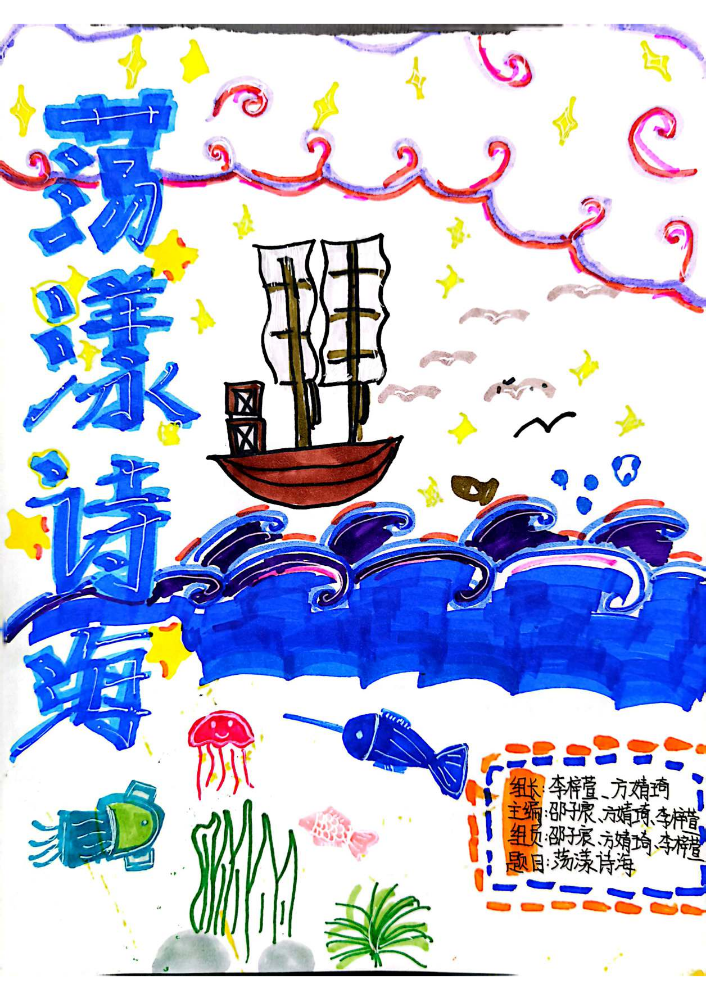 荡漾诗海
组长:李梓萱、方婧琦
主编:邵子宸、方婧琦、李梓萱
组员:邵子宸、方婧琦、李梓萱
题目:荡漾诗海